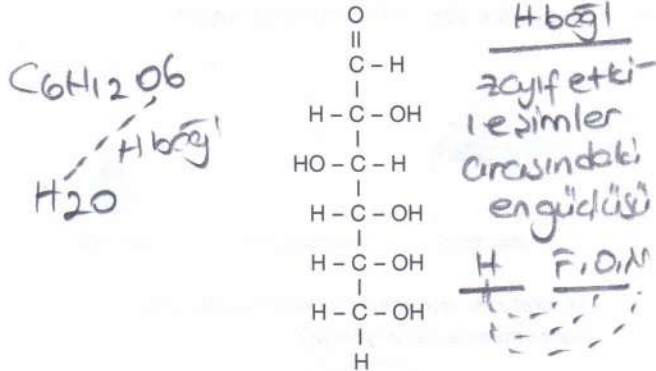 C6H12O6
H bağı
H2O
O
||
C – H
|
H – C – OH
|
HO – C – H
|
H – C – OH
|
H – C – OH
|
H – C – OH
|
H
H bağı
zayıf etki-
leşimler
arasındaki
en güçlüsü
H F, O, N